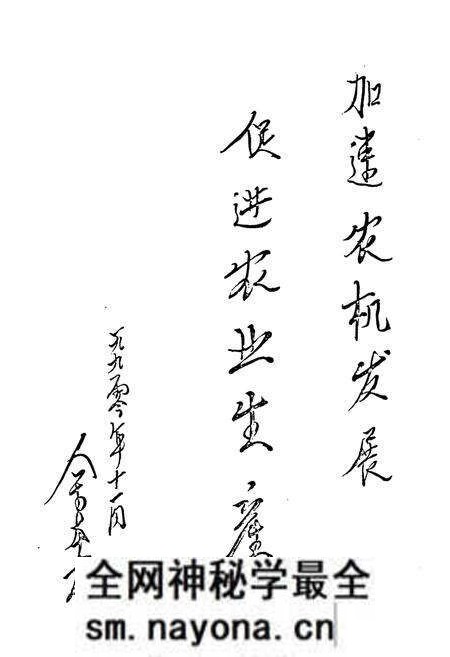 加速农机发展
促进农业生产
一九九零年十一月
全网神秘学最全
sm.nayona.cn